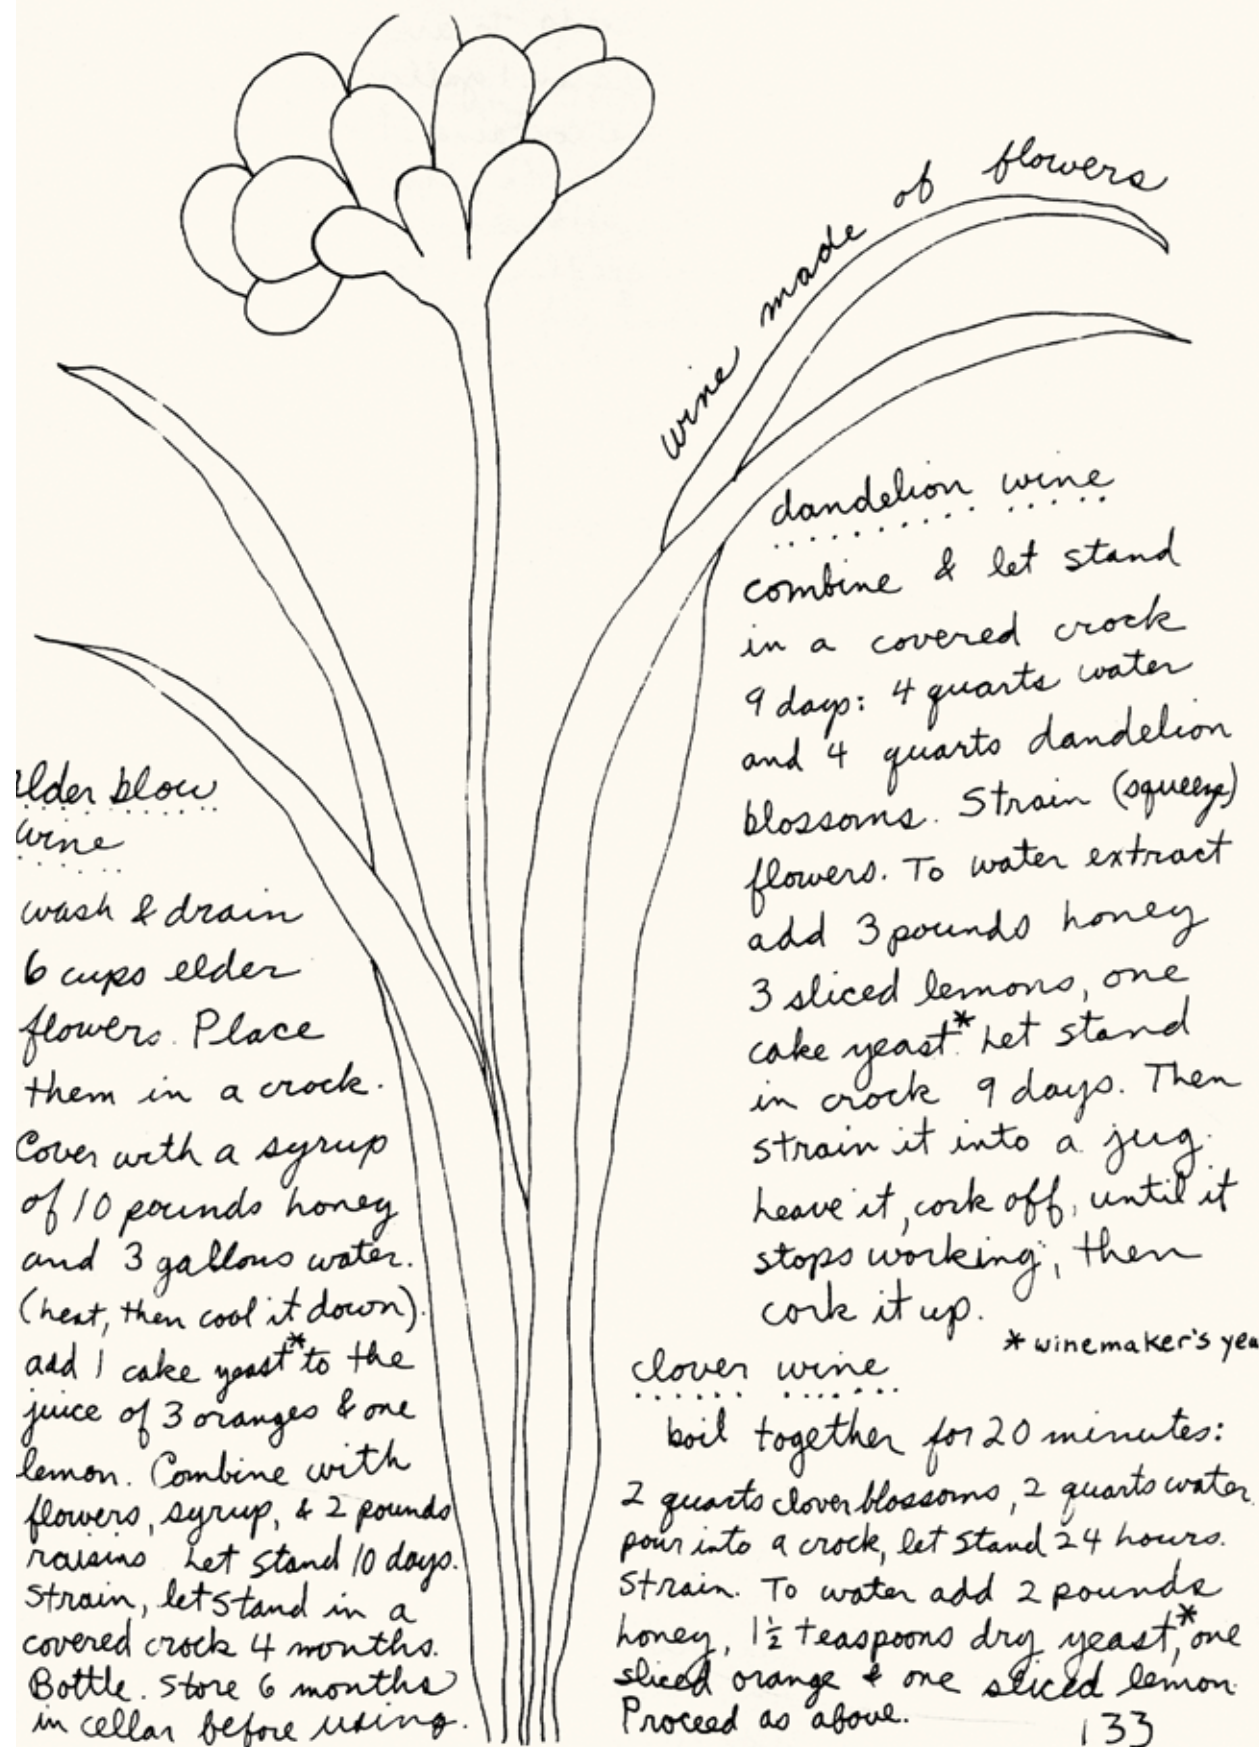 wine made of flowers
elder blow
wine
wash & drain
6 cups elder
flowers. Place
them in a crock.
Cover with a syrup
of 10 pounds honey
and 3 gallons water.
(heat, then cool it down).
add 1 cake yeast* to the
juice of 3 oranges & one
lemon. Combine with
flowers, syrup, & 2 pounds
raisins. Let stand 10 days.
Strain, let stand in a
covered crock 4 months.
Bottle. Store 6 months
in cellar before using.
dandelion wine
combine & let stand
in a covered crock
9 days: 4 quarts water
and 4 quarts dandelion
blossoms. Strain (squeeze)
flowers. To water extract
add 3 pounds honey
3 sliced lemons, one
cake yeast.* Let stand
in crock 9 days. Then
strain it into a jug.
Leave it, cork off, until it
stops working, then
cork it up.
* winemaker's yea
clover wine
boil together for 20 minutes:
2 quarts clover blossoms, 2 quarts water.
pour into a crock, let stand 24 hours.
Strain. To water add 2 pounds
honey, 1½ teaspoons dry yeast,* one
sliced orange & one sliced lemon.
Proceed as above.
133